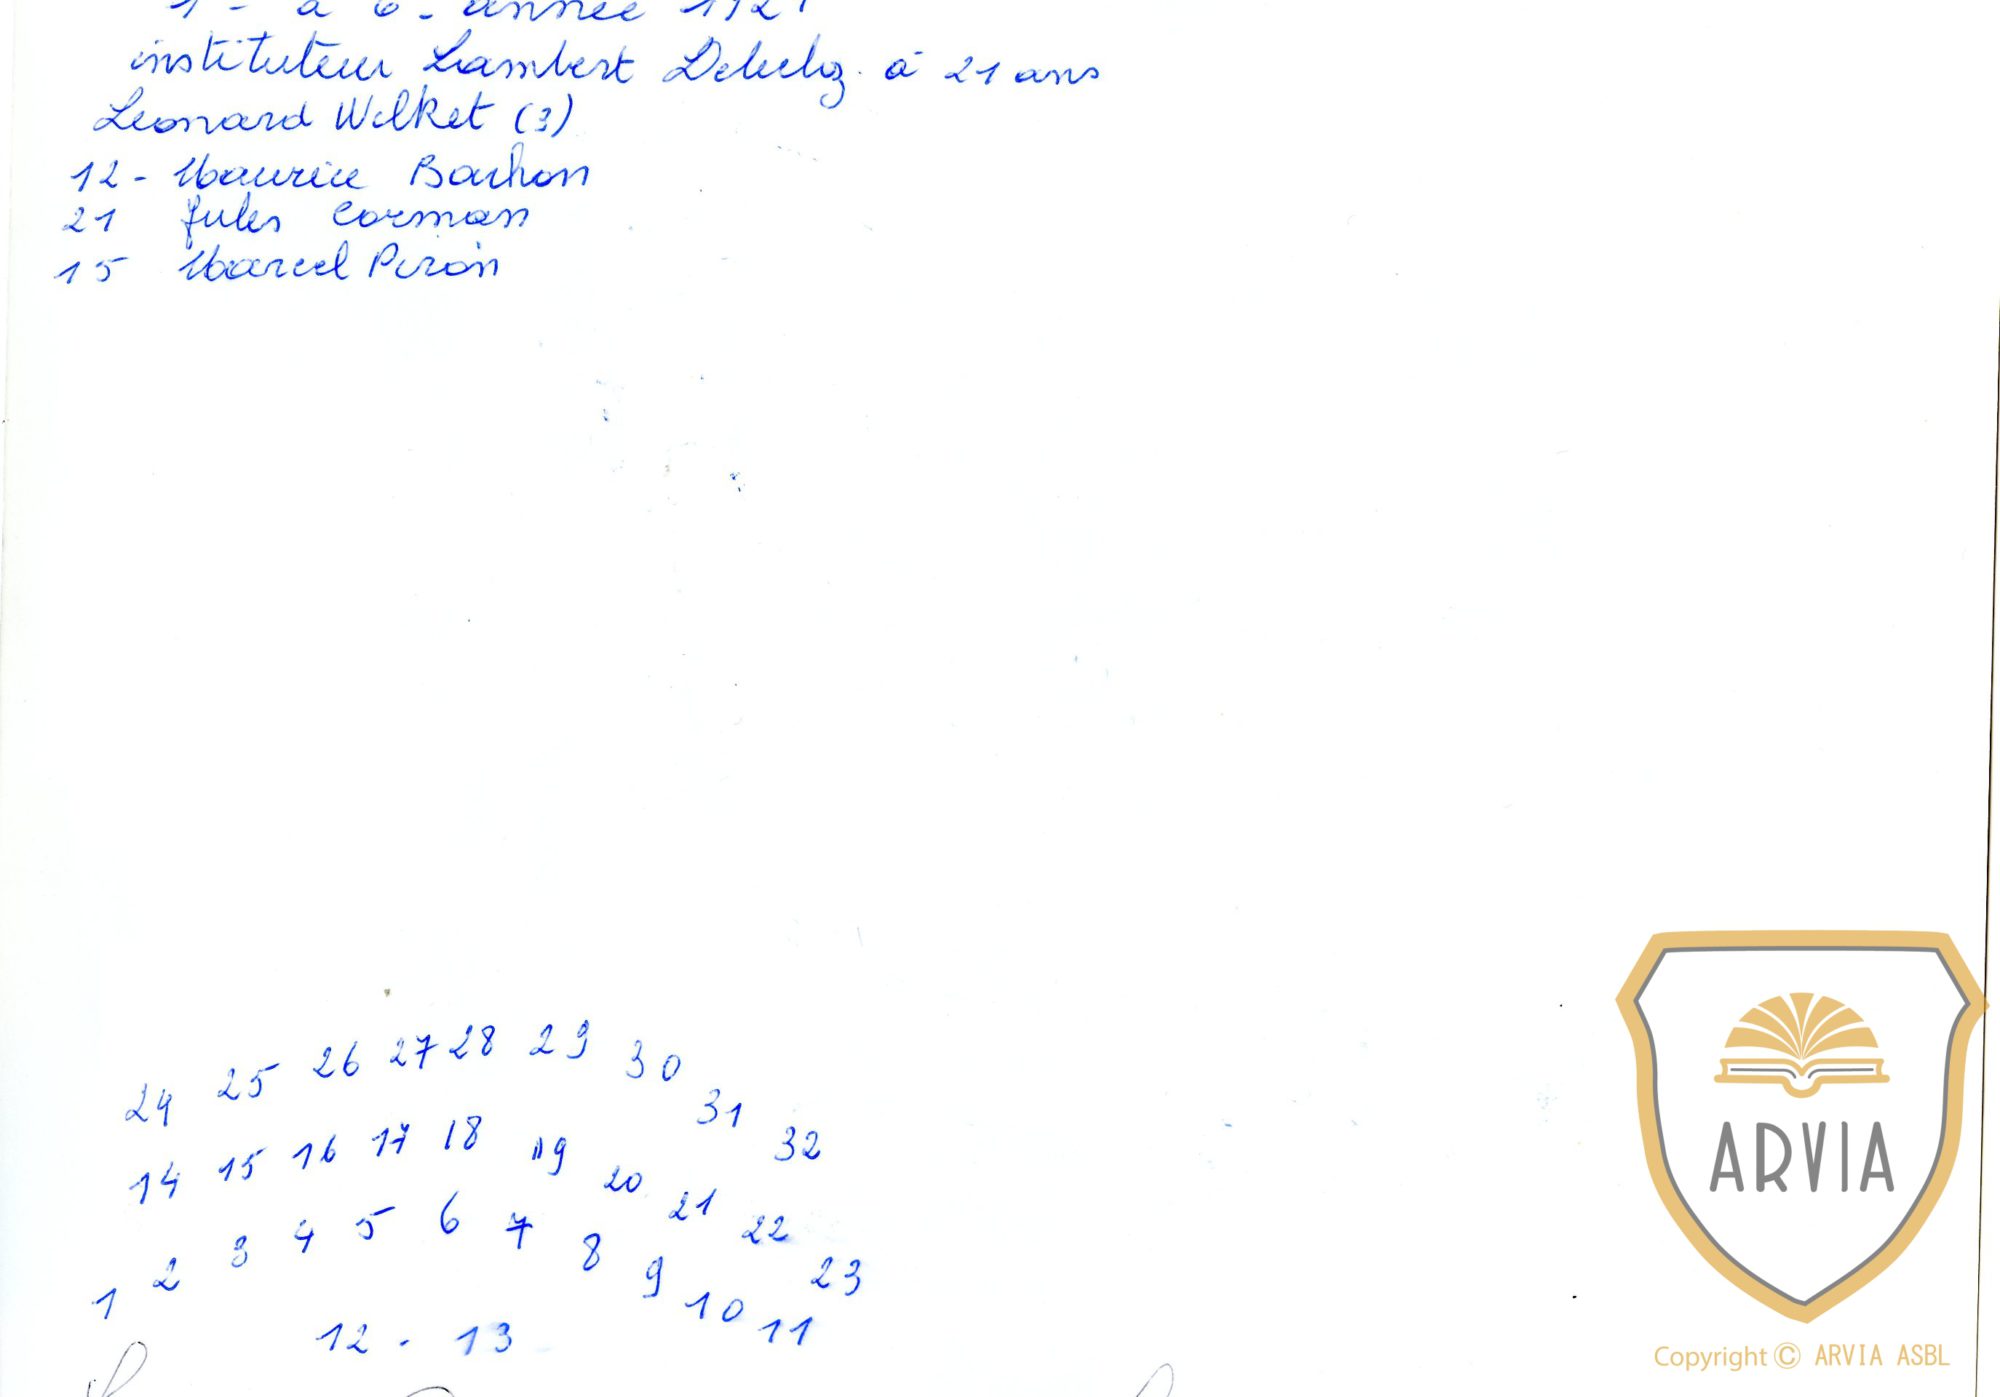 1 - à 6 - année 192
instituteur Lambert à 21 ans
Leonard Wilket (3)
12 - Maurice Bachon
21 Jules Corman
15 Marcel Piron
24 25 26 27 28 29 30 31 32
14 15 16 17 18 19 20 21 22 23
1 2 3 4 5 6 7 8 9 10 11
12 - 13
ARVIA
Copyright © ARVIA ASBL